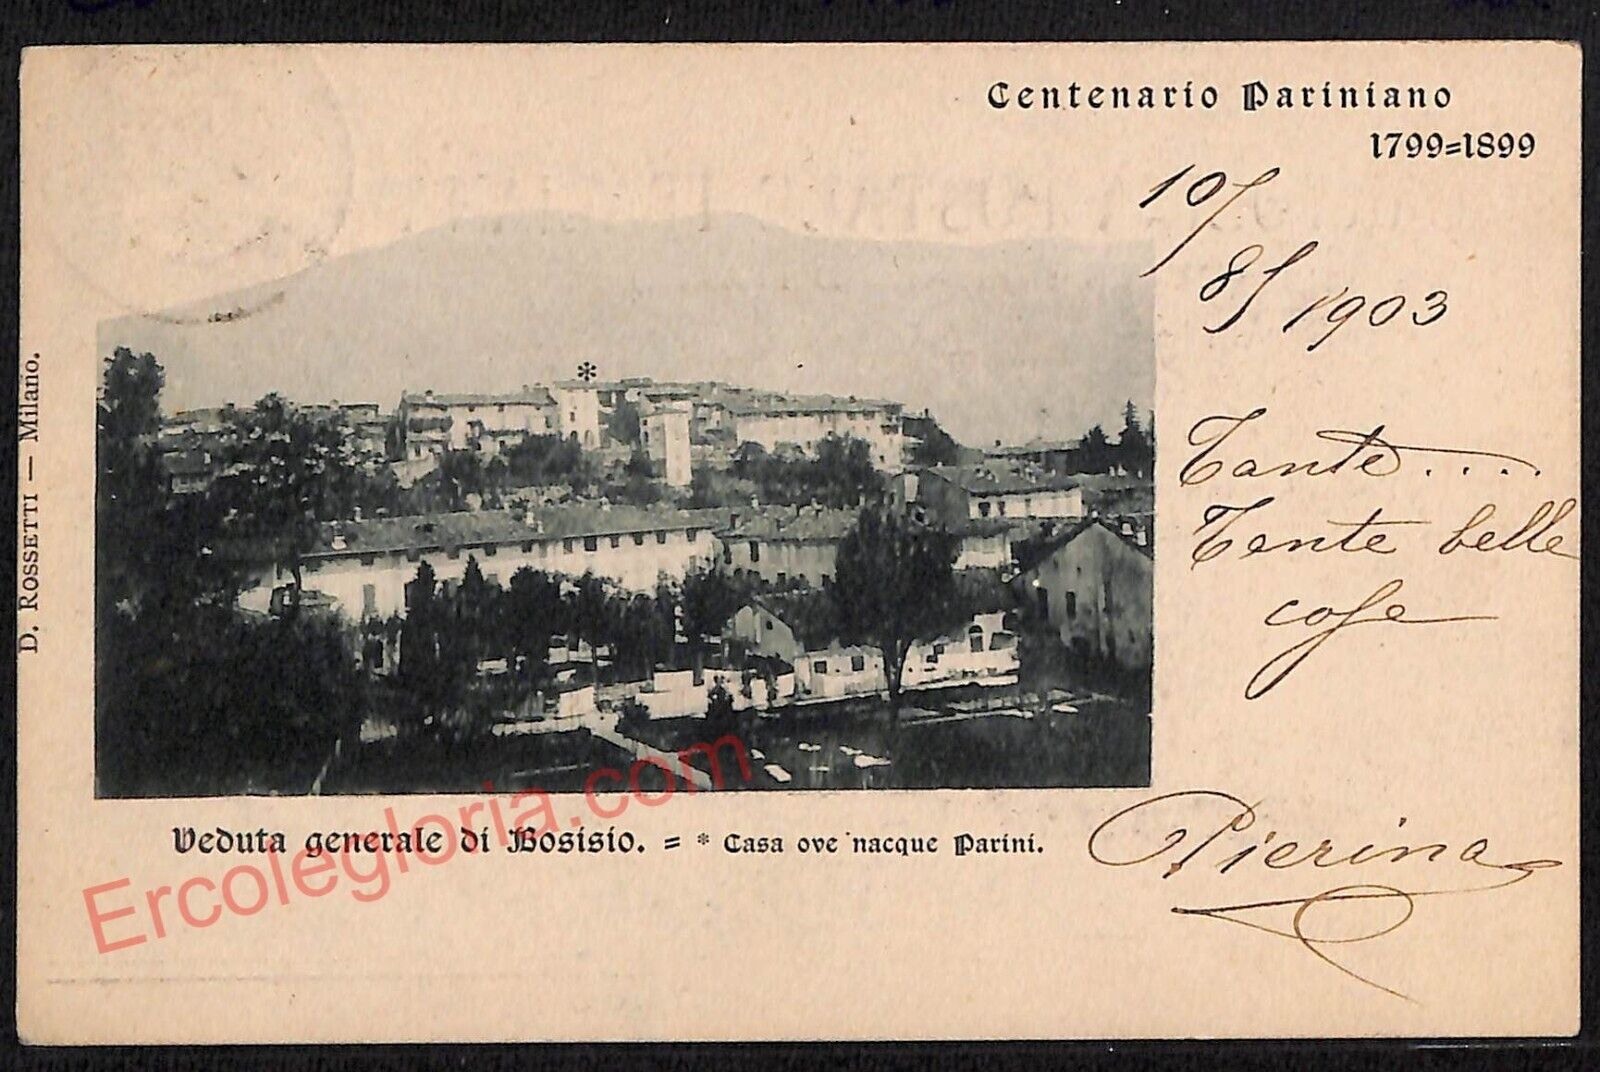 Centenario Pariniano
1799=1899
10/
8/ 1903
Tante....
Tante belle
cose
Pierina
D. ROSSETTI — Milano.
*
Veduta generale di Bosisio. = * Casa ove nacque Parini.
Ercolegloria.com